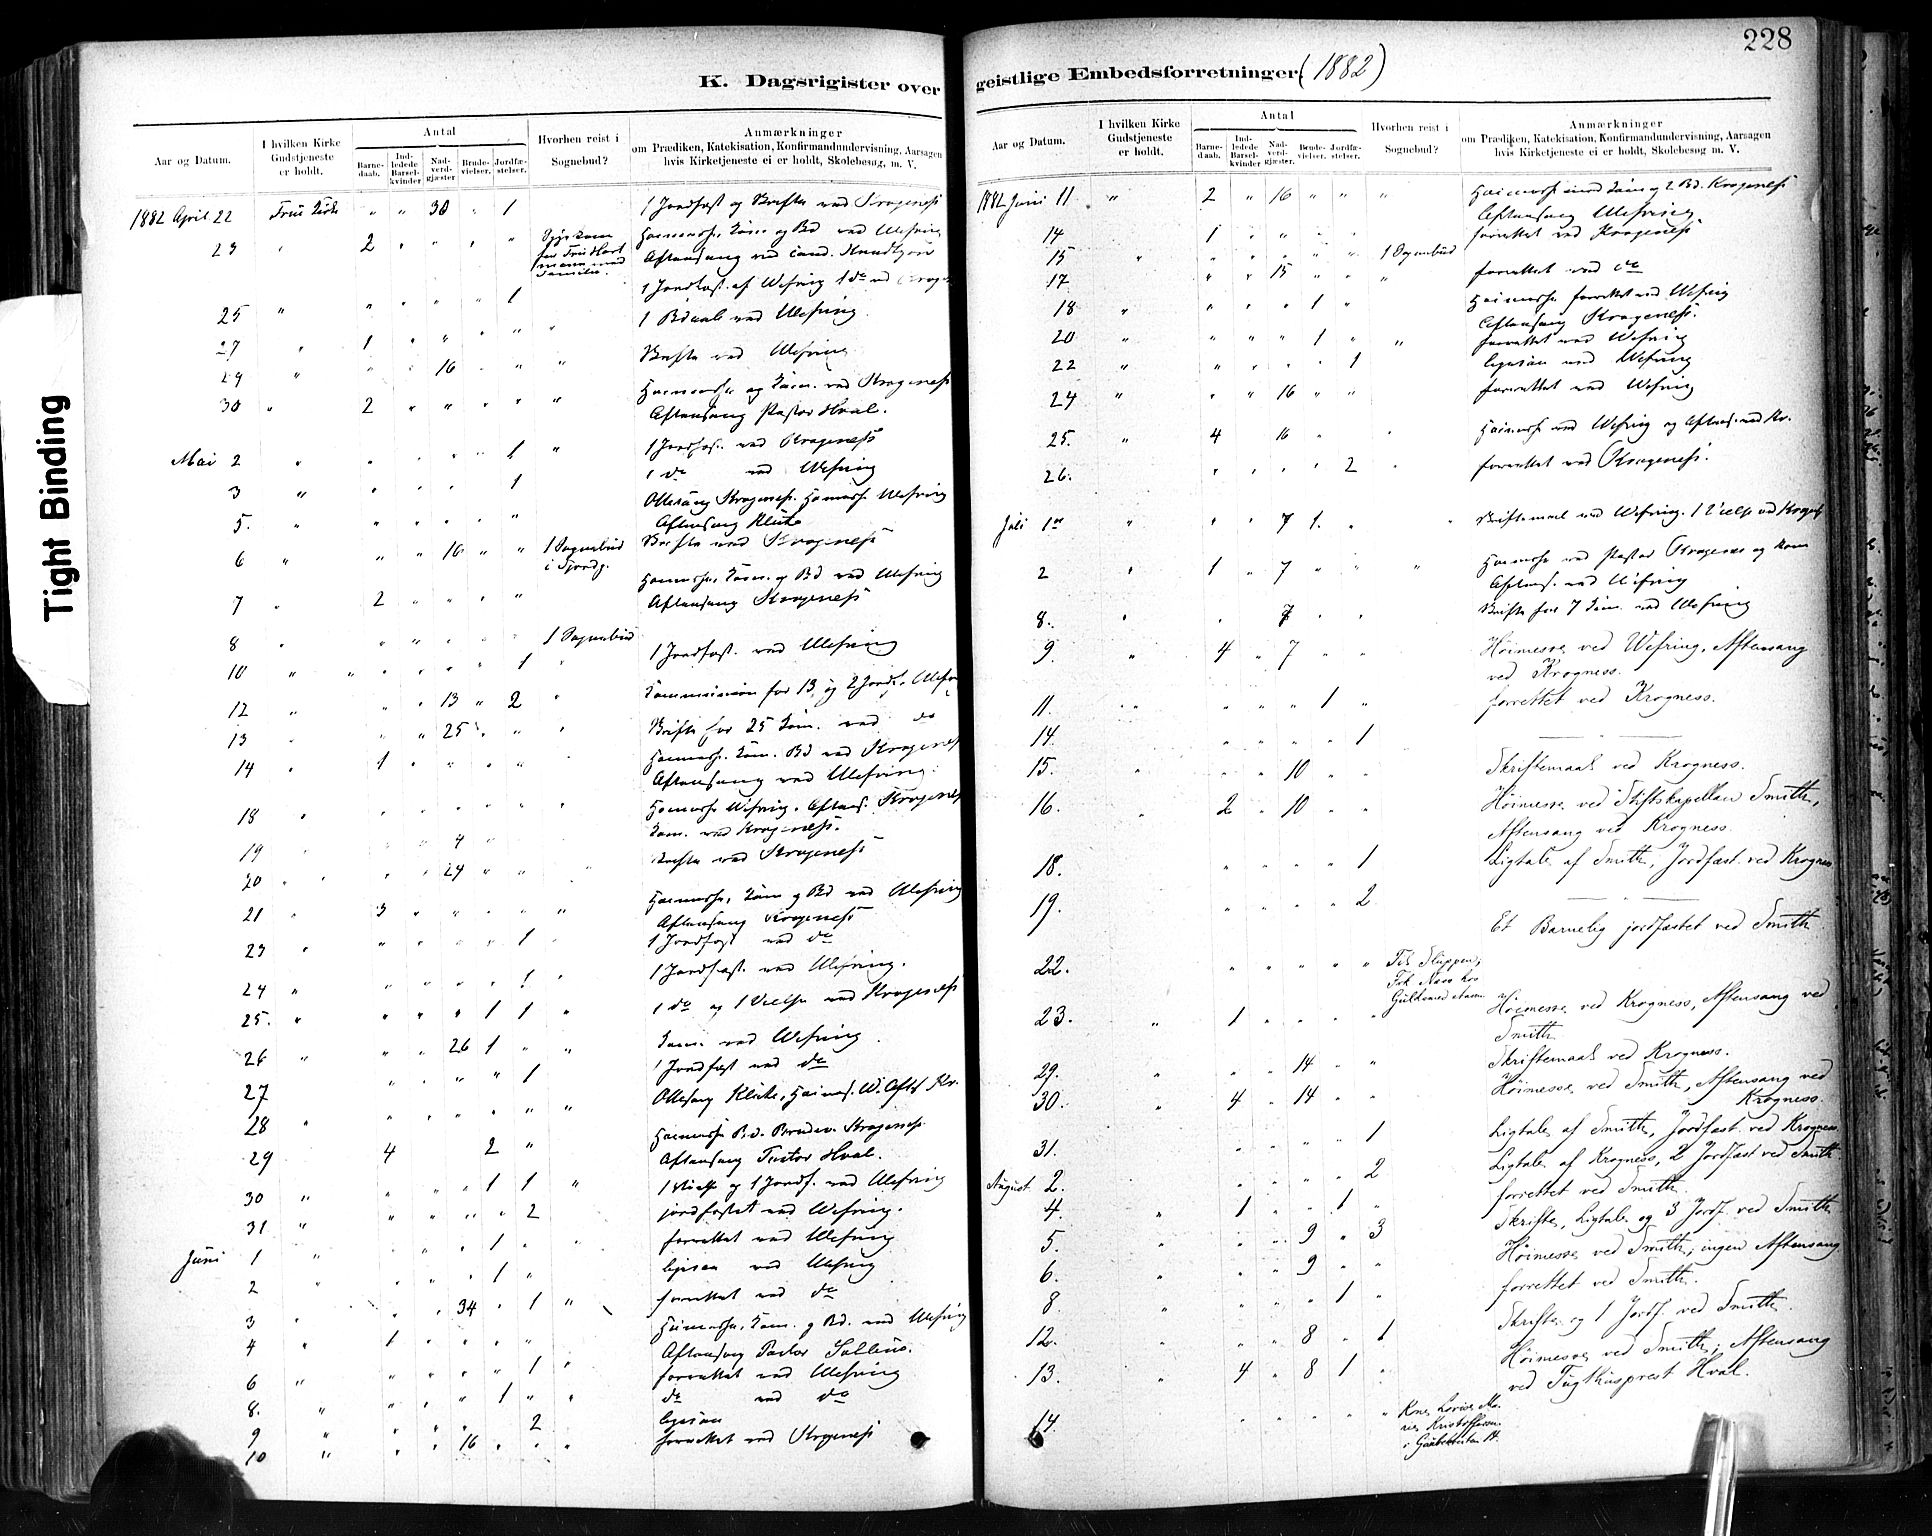 228
K. Dagsrigister over geistlige Embedsforretninger. (1882)
Aar og Datum.
I hvilken Kirke Gudstjeneste er holdt.
Antal
Barne-daab.
Ind-ledede Barsel-kvinder
Nad-verd-gjæster
Brude-vielser.
Jordfæ-stelser.
Hvorhen reist i Sognebud?
Anmærkninger
om Prædiken, Katekisation, Konfirmandundervisning, Aarsagen
hvis Kirketjeneste ei er holdt, Skolebesøg, m. V.
1882 April 22 Frue Kirke " " 30 " 1 1 Jordfast og Skrifte ved Krogness
23 " 2 " " " " Høimesse, Kom. og Bd ved Wefring
Aftensang ved Cand. Knudtzon
25 " " " " " 1
1 Bdaab ved Wefring
27 " 1 " " " " "
29 " " " 16 " " " Skrifte ved Wefring
30 " 2 " " " " " Høimesse og Kom. ved Krogness
Aftensang Pastor Hval.
Mai 2 " " " " " 1 " 1 Jordfas. ved Krogness
3 " " " " " 1 1 do ved Wefring
5. " " " " " " Ottesang Krogness. Høimesse Wefring
Aftensang Klüke
6 " " " 16 " " 1 Sognebud i Fjordg. Skrifte ved Krogness
7 " 2 " " " " Høimesse, Kom. og Bd ved Wefring
Aftensang Krogness
8 " " " " " " 1 Sognebud
10 " " " " " 1 " 1 Jordfast. ved Wefring
12 " " " 13 " 2 " Kommunion for 13 og 2 Jordf.
13 " " " 25 " " " Skrifte for 25 Kom. ved do
14 " 1 " " " " Høimesse. Kom. Bd ved Krogness
Aftensang ved Wefring.
18 " " " " " " " Høimesse Wefring. Aftens. Krogness
19 " " " 4 " Kom. ved Krogness.
20 " " " 24 " " " Skrifte ved Krogness
21 " 3 " " " " " Høimesse, Kom og Bd ved Wefring
Aftensang Krogness
23 " " " " " 1 " 1 Jordfast ved do
24 " " " " " 1 " 1 Jordfast. ved Wefring.
25. " " " " 1 1 " 1 do og 1 Vielse ved Krogness
26 " " " 26 1 " " Kom. ved Wefring.
27 " " " " 1 1 Jordfast ved do
28 " " " " " " " Ottesang Klüke, Høimes. W. Aft. Kr.
29 4 2 " Høimesse Bd. Brudev. Krogness.
Aftensang Pastor Hval.
30 " " " " 1 1 " 1 Vielse og 1 Jordf. ved Wefring
31 " " " " " 2 jordfæstet ved Wefring.
Juni 1 " " " " 1 " " forrettet ved Wefring
2 " " " " 1 " ved Wefring
3 " " " 34 " 1 " forrettet ved do
4 " 1 " " " " Høimesse, Kom. og Bd. ved Wefring
Aftensang Pastor
6 " " " " " 1 " forrettet ved Wefring
8. " " " " 1 " " do ved do
9 " " " " 2
10 " " " 16 " " " forrettet ved Krogness
1882 Juni 11 " 2 " 16 " " " Høimesse med Kom og 2 Bd. Krogness
Aftensang Wefring.
14 1 " " " " forrettet ved Krogness
15 " " " " " " 1 Sognebud
17 " " 15 " " " forrettet ved do
18 " " " " 1 " Høimesse forrettet ved Wefring
Aftensang Krogness.
20 " " " " 1 " " forrettet ved Wefring
22 " " " " " 1 ved Wefring
24 " " " 16 " " forrettet ved Wefring
25. " 4 " 16 " " Høimesse ved Wefring og Aftens. ved Kr.
26. " " " " 2 " forrettet ved Krogness.
Juli 1ste " " " 7 1. " Skriftemaal ved Wefring. 1 Vielse ved Krogness
2 " 1 " 7 " " " Høimesse ved Pastor Krogness og Kom
Aftens. ved Wefring
8. " " 7 " " Skrifte for 7 Kom. ved Wefring
9. " 4 " 7 " " Høimesse ved Wefring, Aftensang
ved Krogness.
11. " " " " " 1 " forrettet ved Krogness.
14. " " " " 1 — " —
15. " " " 10 " " Skriftemaal ved Krogness.
16. " 2 " 10 " " " Høimesse ved Stiftskapellan Smith,
Aftensang ved Krogness.
18. " " " " 1 Ligtale af Smith, Jordfæst. ved Krogness
19. " " " " 2 — " —
Et Barnelig jordfæstet ved Smith
22. " " " " "
23. " 1 " " " " Høimesse ved Krogness, Aftensang ved
Smith
29. " " " 14 " " Skriftemaal ved Krogness.
30. " 4 " 14 " " Høimesse ved Smith, Aftensang ved
Krogness.
31. " " " " 1 Ligtale af Smith, Jordfæst. ved Krogness.
August 2. " " " " 2 Ligtale af Krogness, 2 Jordfæst ved Smith.
4. " 1 " " 1 " forrettet ved Smith.
5. " " " 9 " 3 Skrifte, Ligtale og 3 Jordf. ved Smith
6. " " " 9 " " Høimesse ved Smith; ingen Aftensang
8. " " " " 1 " forrettet ved Smith.
12. " " " 8 " 1 Skrifte og 1 Jordf. ved Smith.
13. " 4 " 8 1 " Høimesse ved Smith; Aftensang
ved Tugthusprest Hval.
14. " " " " " "
Tight Binding